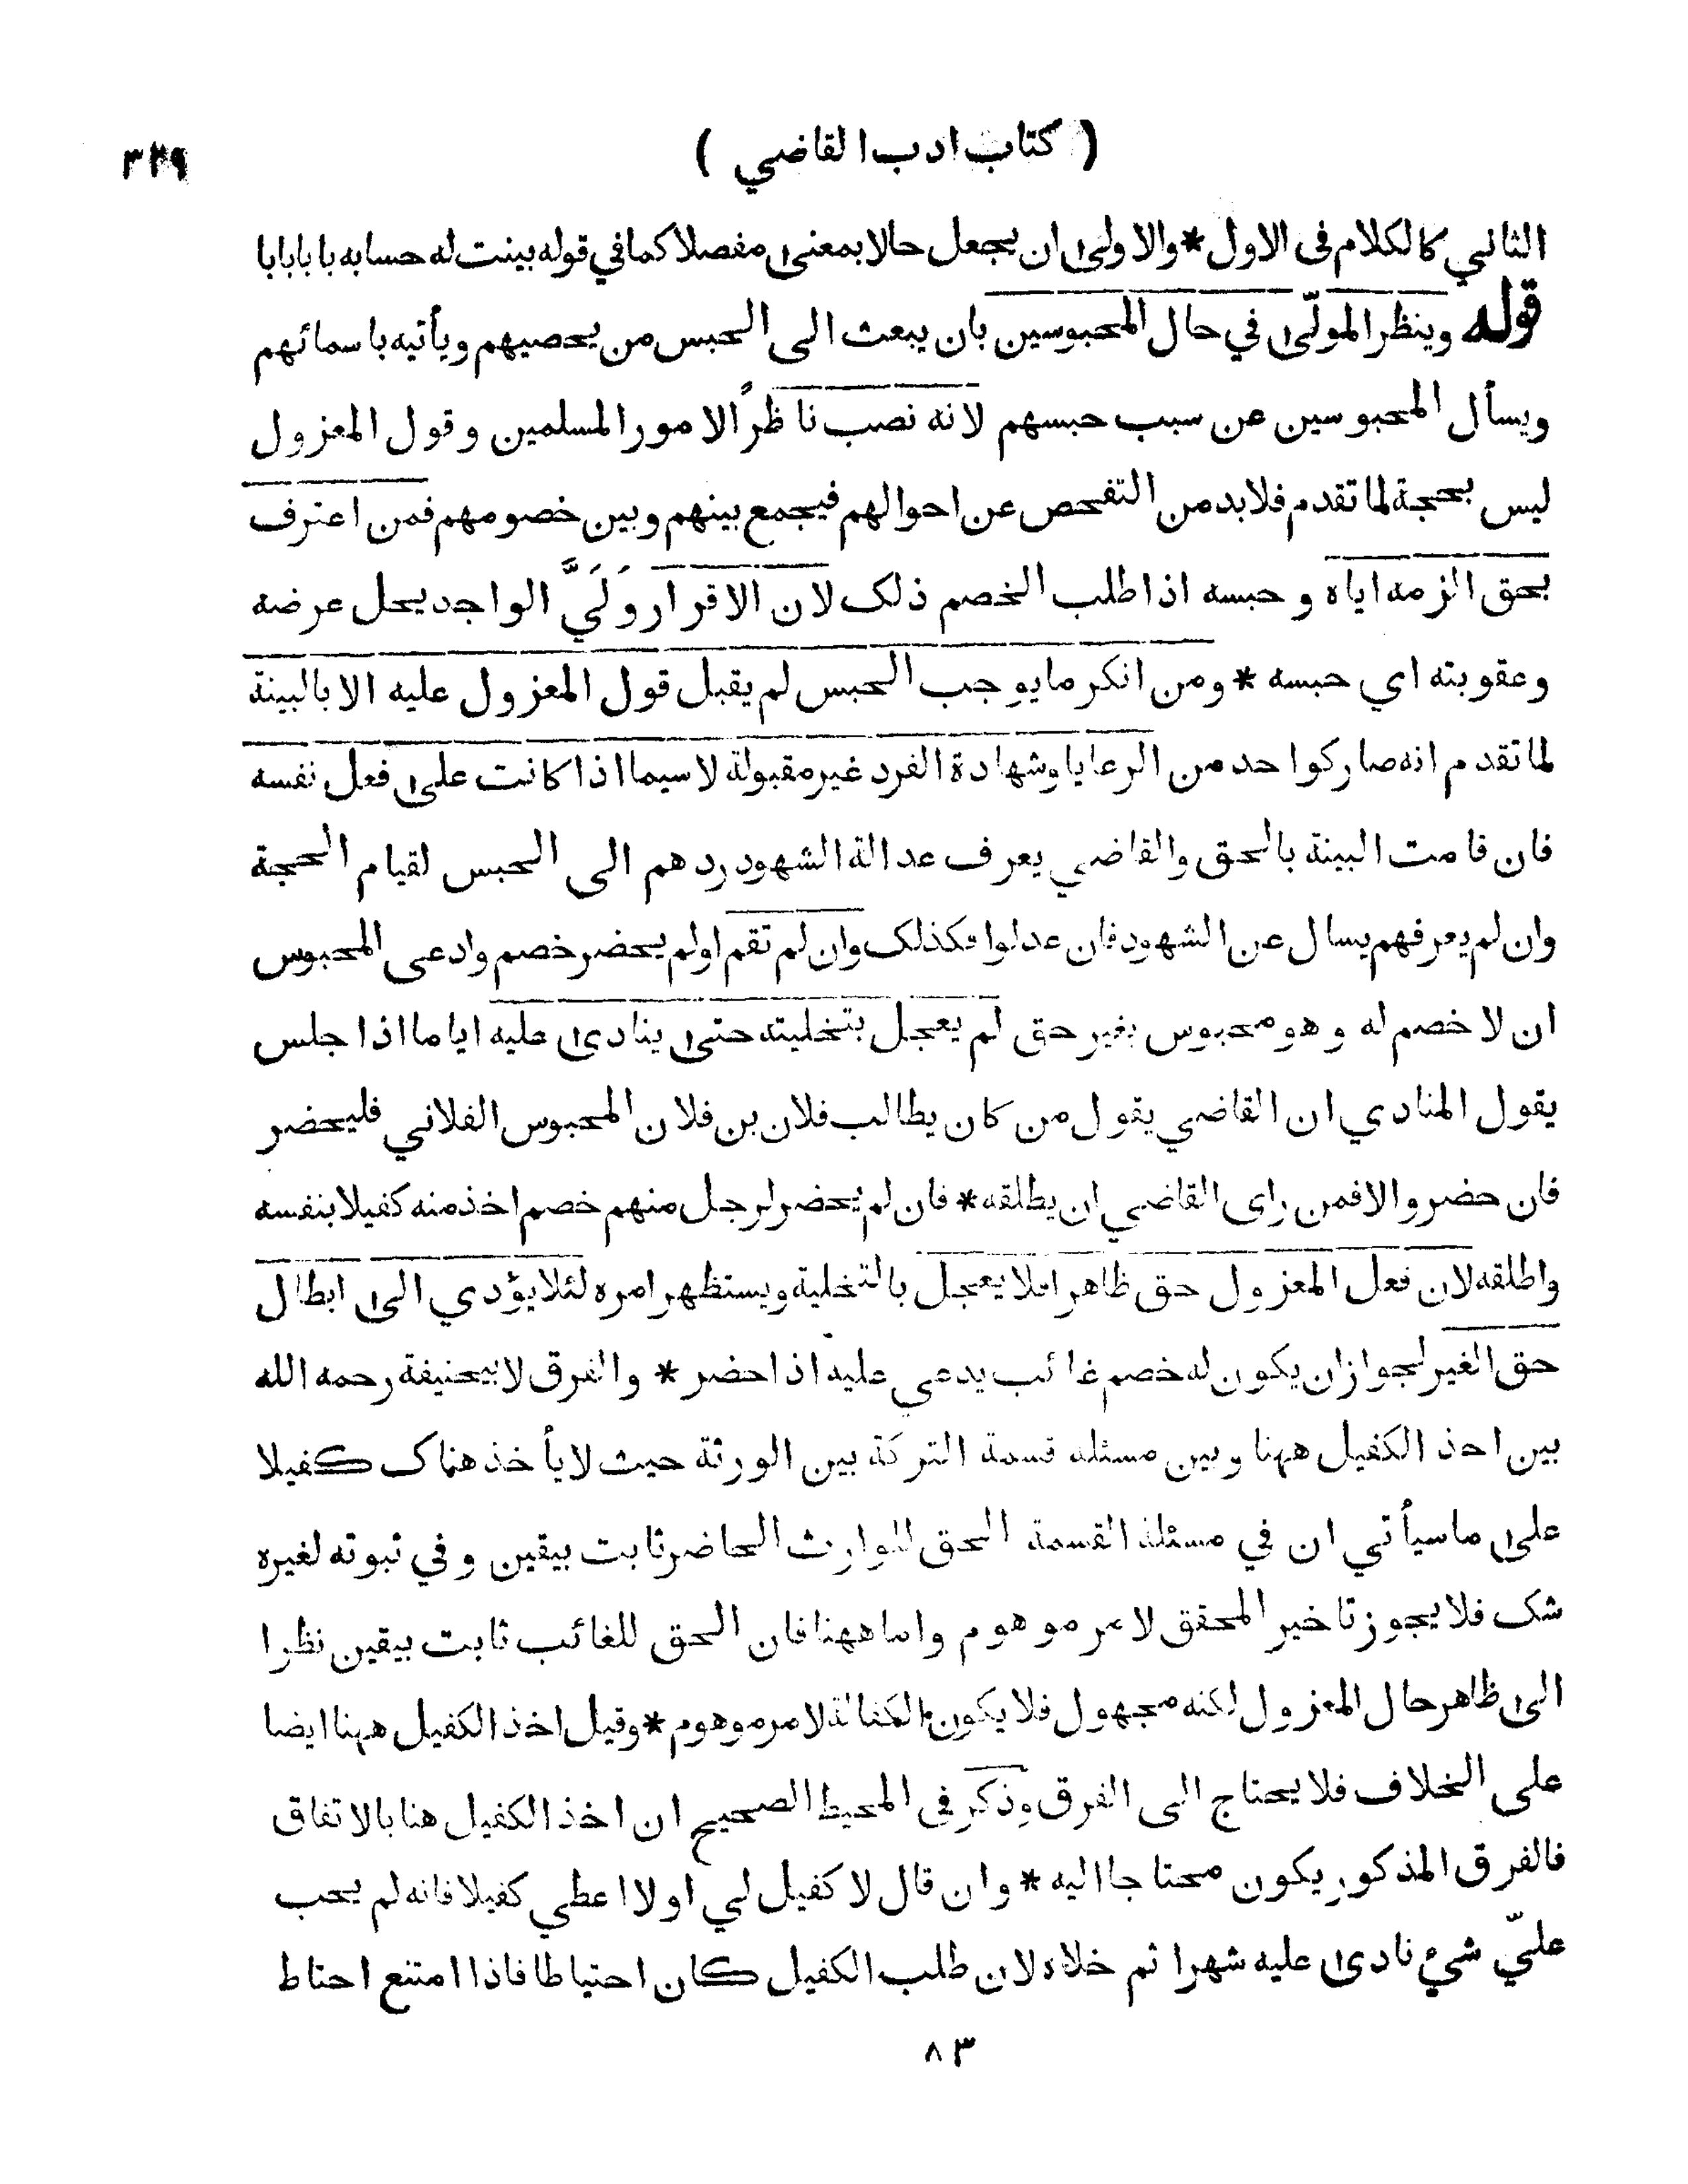 ( كتاب ادب القاضي )
٣٢٩
الثاني كالكلام فى الاول * والاولى ان يجعل حالا بمعنى مفصلا كما في قوله بينت له حسابه بابا بابا
قوله وينظر المولّى في حال المحبوسين بان يبعث الى الحبس من يحصيهم ويأتيه باسمائهم
ويسأل المحبوسين عن سبب حبسهم لانه نصب ناظرًا لامور المسلمين وقول المعزول
ليس بحجة لما تقدم فلا بد من التفحص عن احوالهم فيجمع بينهم وبين خصومهم فمن اعترف
بحق الزمه اياه وحبسه اذا طلب الخصم ذلك لان الاقرار وَلَيَّ الواجد يحل عرضه
وعقوبته اي حبسه * ومن انكر ما يوجب الحبس لم يقبل قول المعزول عليه الا بالبينة
لما تقدم انه صار كواحد من الرعايا وشهادة الفرد غير مقبولة لا سيما اذا كانت على فعل نفسه
فان قامت البينة بالحق والقاضي يعرف عدالة الشهود ردهم الى الحبس لقيام الحجة
وان لم يعرفهم يسال عن الشهود فان عدلوا فكذلك وان لم تقم او لم يحضر خصم وادعى المحبوس
ان لا خصم له وهو محبوس بغير حق لم يعجل بتخليته حتى ينادى عليه اياما اذا جلس
يقول المنادي ان القاضي يقول من كان يطالب فلان بن فلان المحبوس الفلاني فليحضر
فان حضر والا فمن راى القاضي ان يطلقه * فان لم يحضر لرجل منهم خصم اخذ منه كفيلا بنفسه
واطلقه لان فعل المعزول حق ظاهرا فلا يعجل بالتخلية ويستظهر امره لئلا يؤدي الى ابطال
حق الغير لجواز ان يكون له خصم غائب يدعي عليه اذا حضر * والفرق لابيحنيفة رحمه الله
بين اخذ الكفيل ههنا وبين مسئله قسمة التركة بين الورثة حيث لا يأخذ هناك كفيلا
على ما سيأتي ان في مسئلة القسمة الحق للوارث الحاضر ثابت بيقين وفي ثبوته لغيره
شك فلا يجوز تاخير المحقق لامر موهوم واما ههنا فان الحق للغائب ثابت بيقين نظرا
الى ظاهر حال المعزول لكنه مجهول فلا يكون الكفالة لامر موهوم * وقيل اخذ الكفيل ههنا ايضا
على الخلاف فلا يحتاج الى الفرق وذكر فى المحيط الصحيح ان اخذ الكفيل هنا بالاتفاق
فالفرق المذكور يكون محتاجا اليه * وان قال لا كفيل لي او لا اعطي كفيلا فانه لم يجب
عليّ شيء نادى عليه شهرا ثم خلاه لان طلب الكفيل كان احتياطا فاذا امتنع احتاط
٨٣